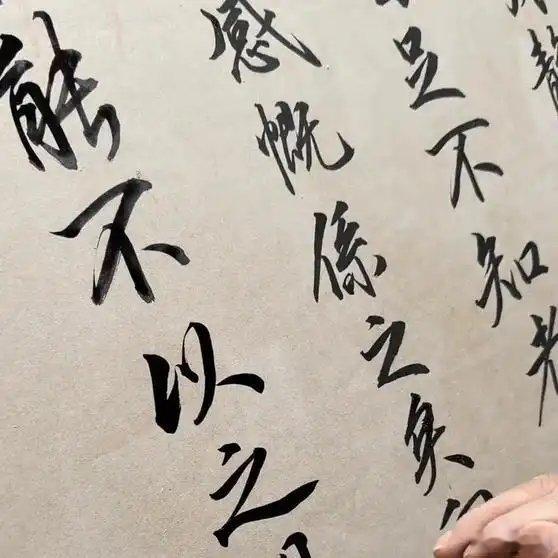 足不知老
感慨係之矣
能不以之